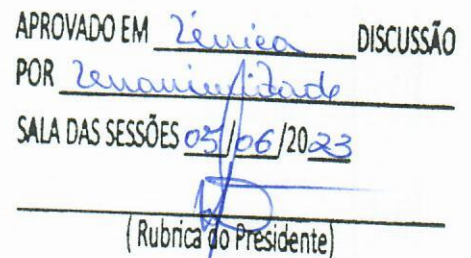 APROVADO EM Única DISCUSSÃO
POR Unanimidade
SALA DAS SESSÕES 05/06/2023
(Rubrica do Presidente)